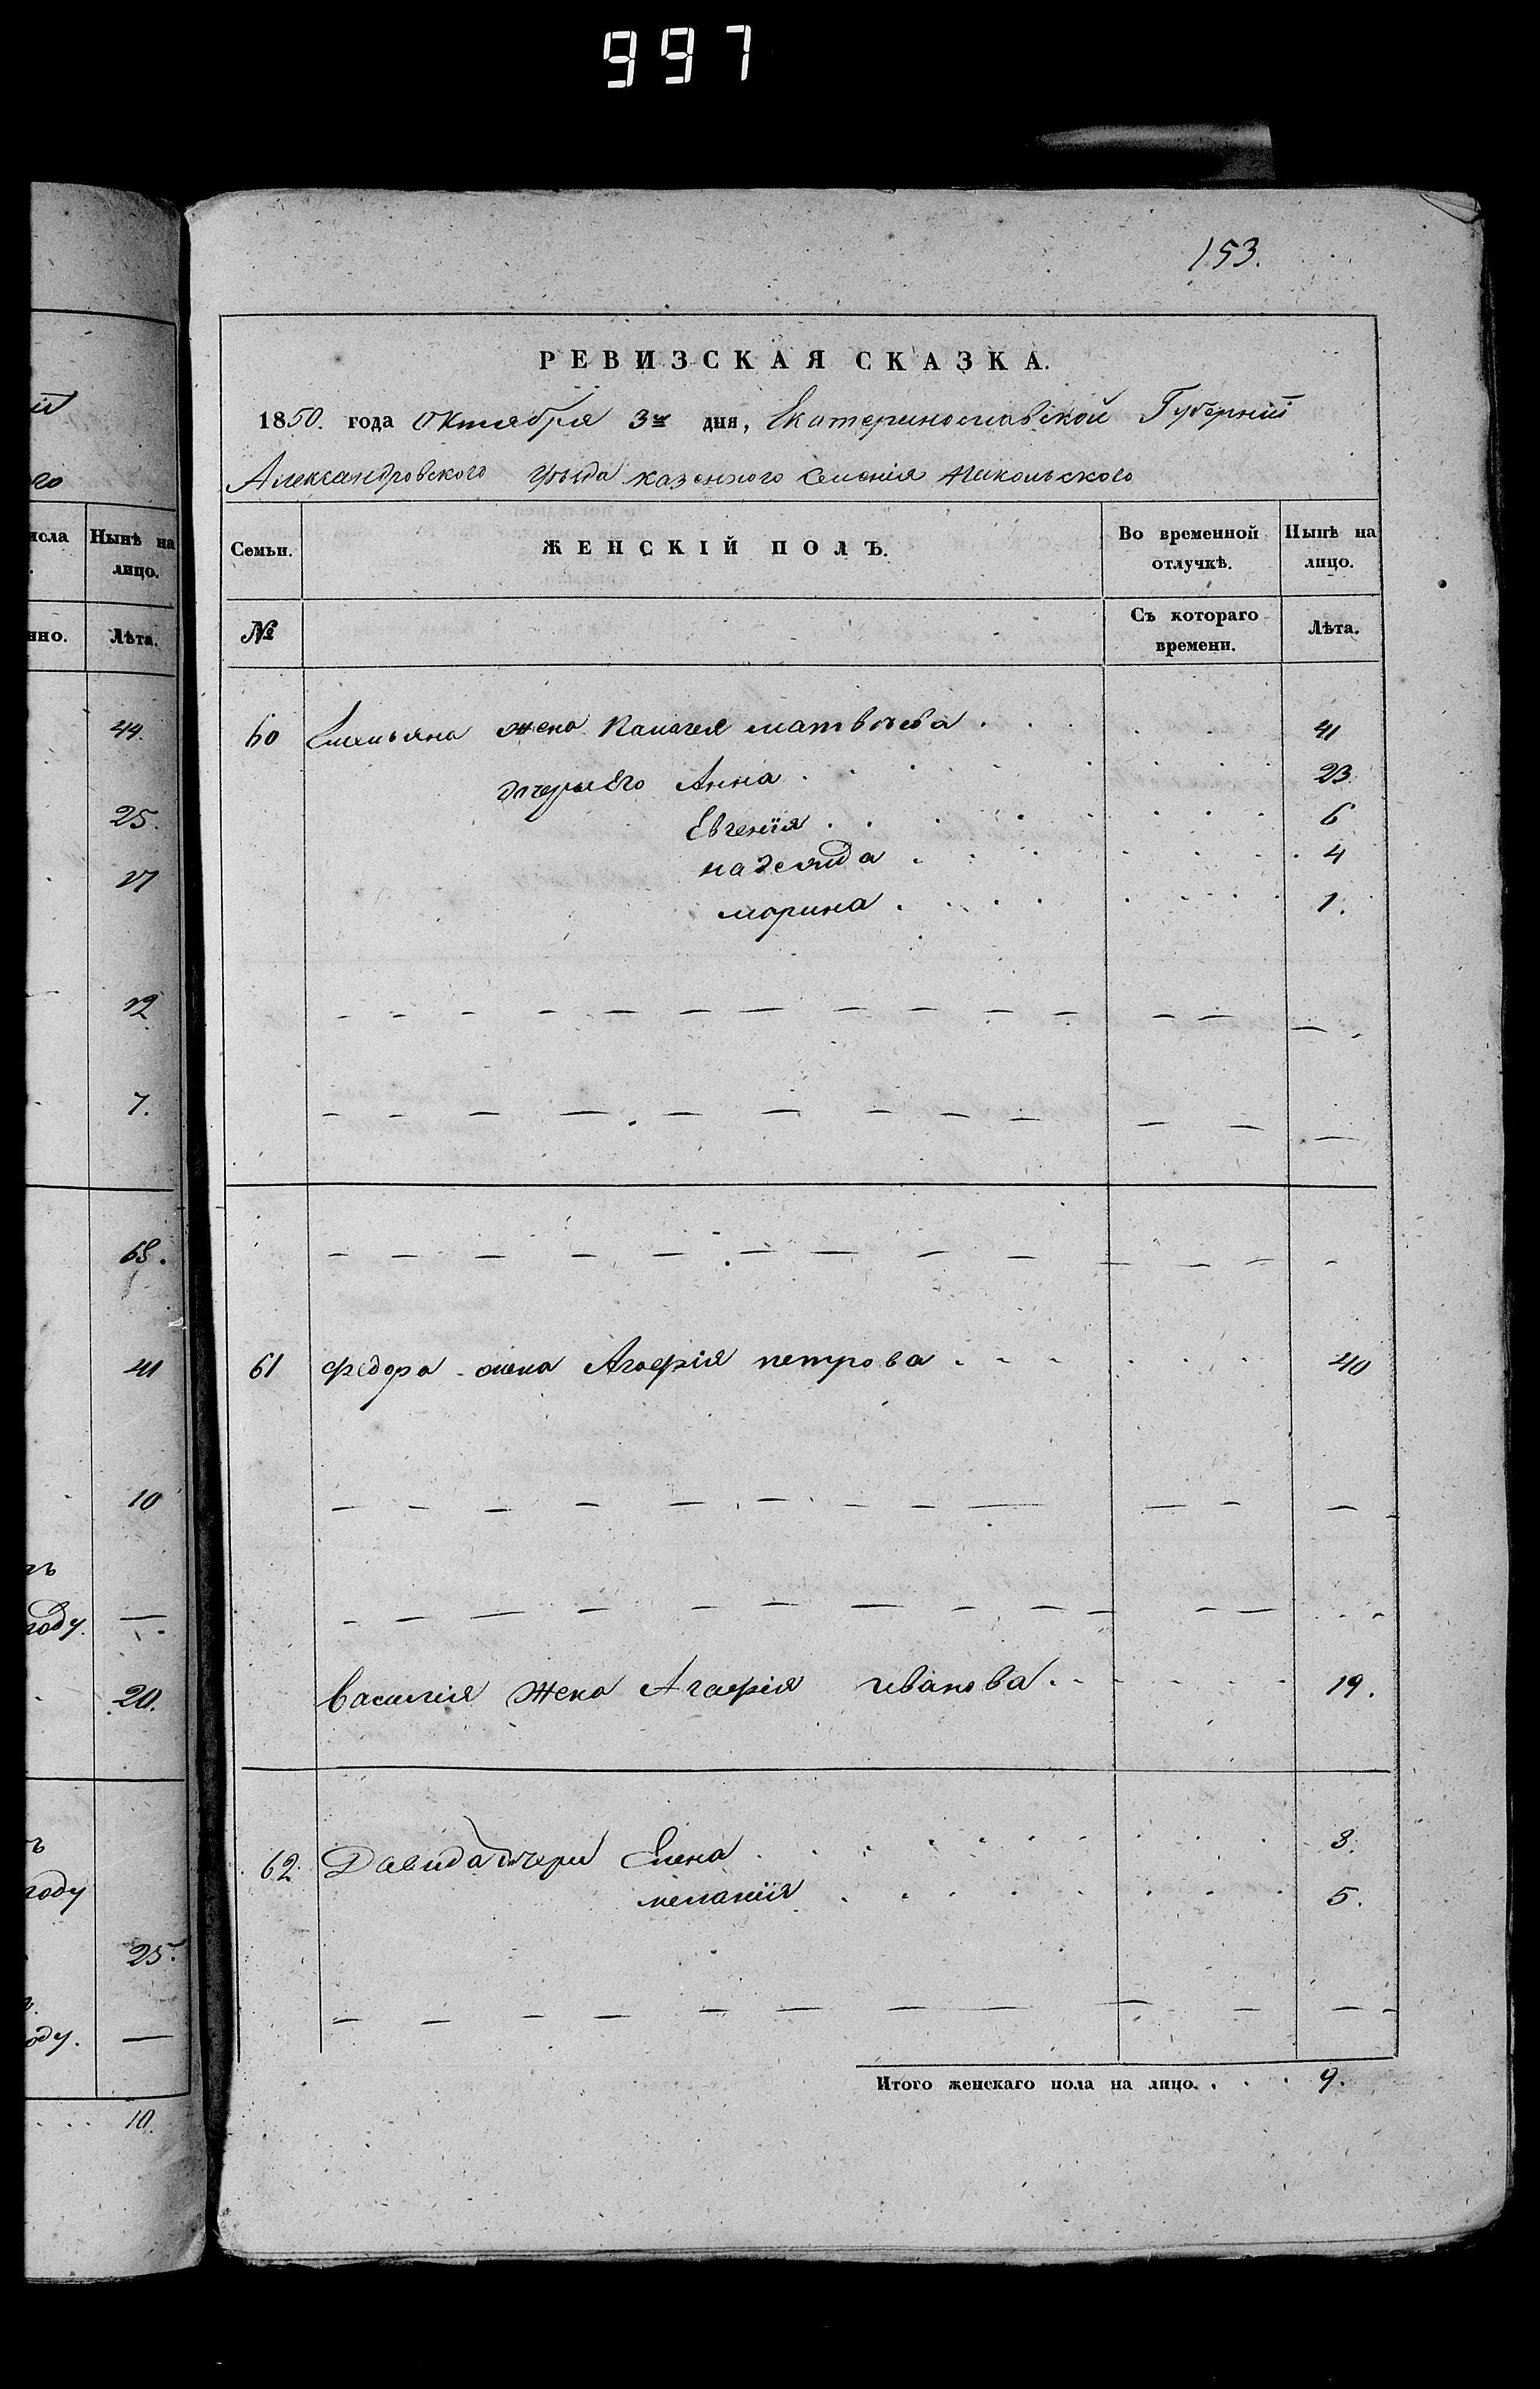 997
153.
РЕВИЗСКАЯ СКАЗКА.
1850. года Октября 3го дня, Екатеринославской Губерніи
Александровского уезда казенного Селенія Никольского
Нынѣ на
лицо.
Лѣта.
44.
25.
17
12
7.
68.
41
10
году.
—
20.
году
25.
—
10.
Семьи.
ЖЕНСКІЙ ПОЛЪ.
Во временной
отлучкѣ.
Нынѣ на
лицо.
№
Съ котораго
времени.
Лѣта.
60 Емельяна жена Палагея матвѣева . . . 41
дочери Его Анна . . . 23.
Евгенія . . . 6
надежда . . . 4
марина . . . 1.
61 федора жена Агафія петрова . . . 40
василія жена Агафія иванова . . . 19.
62. Давида дочери Елена . . . 8.
меланія . . . 5.
Итого женскаго пола на лицо. . . . 9.